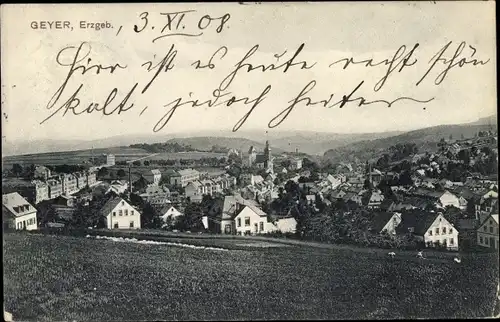 GEYER, Erzgeb. 3. XI. 08
Hier ist es heute recht schön
kalt, jedoch heiter